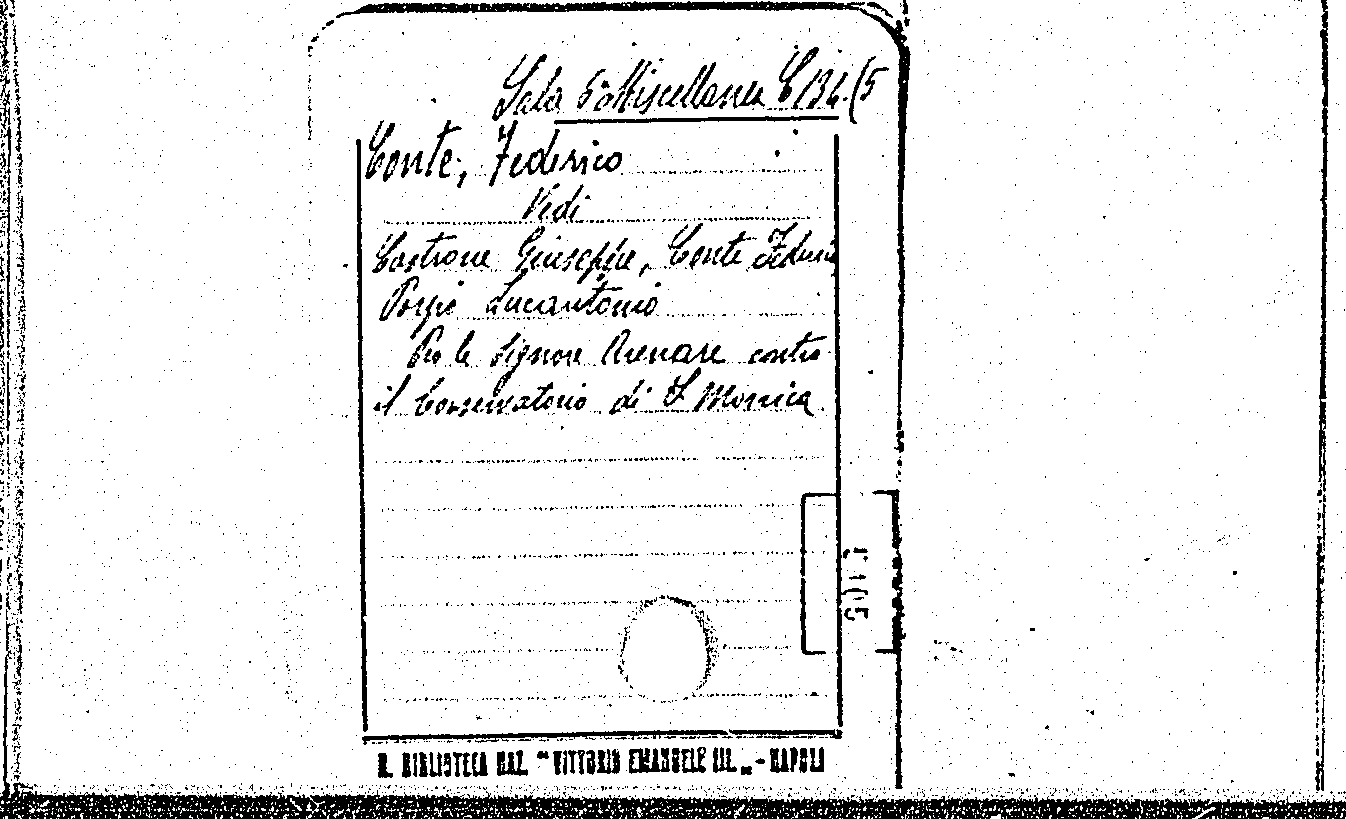 Sala 6ª Miscellanea C 134 (5
Conte, Federico
Vedi
Castrone Giuseppe, Conte Federico
Porpi Lucantonio
Per le Signore Arenare contro
il Conservatorio di S Monica
R. BIBLIOTECA NAZ. "VITTORIO EMANUELE III„ - NAPOLI